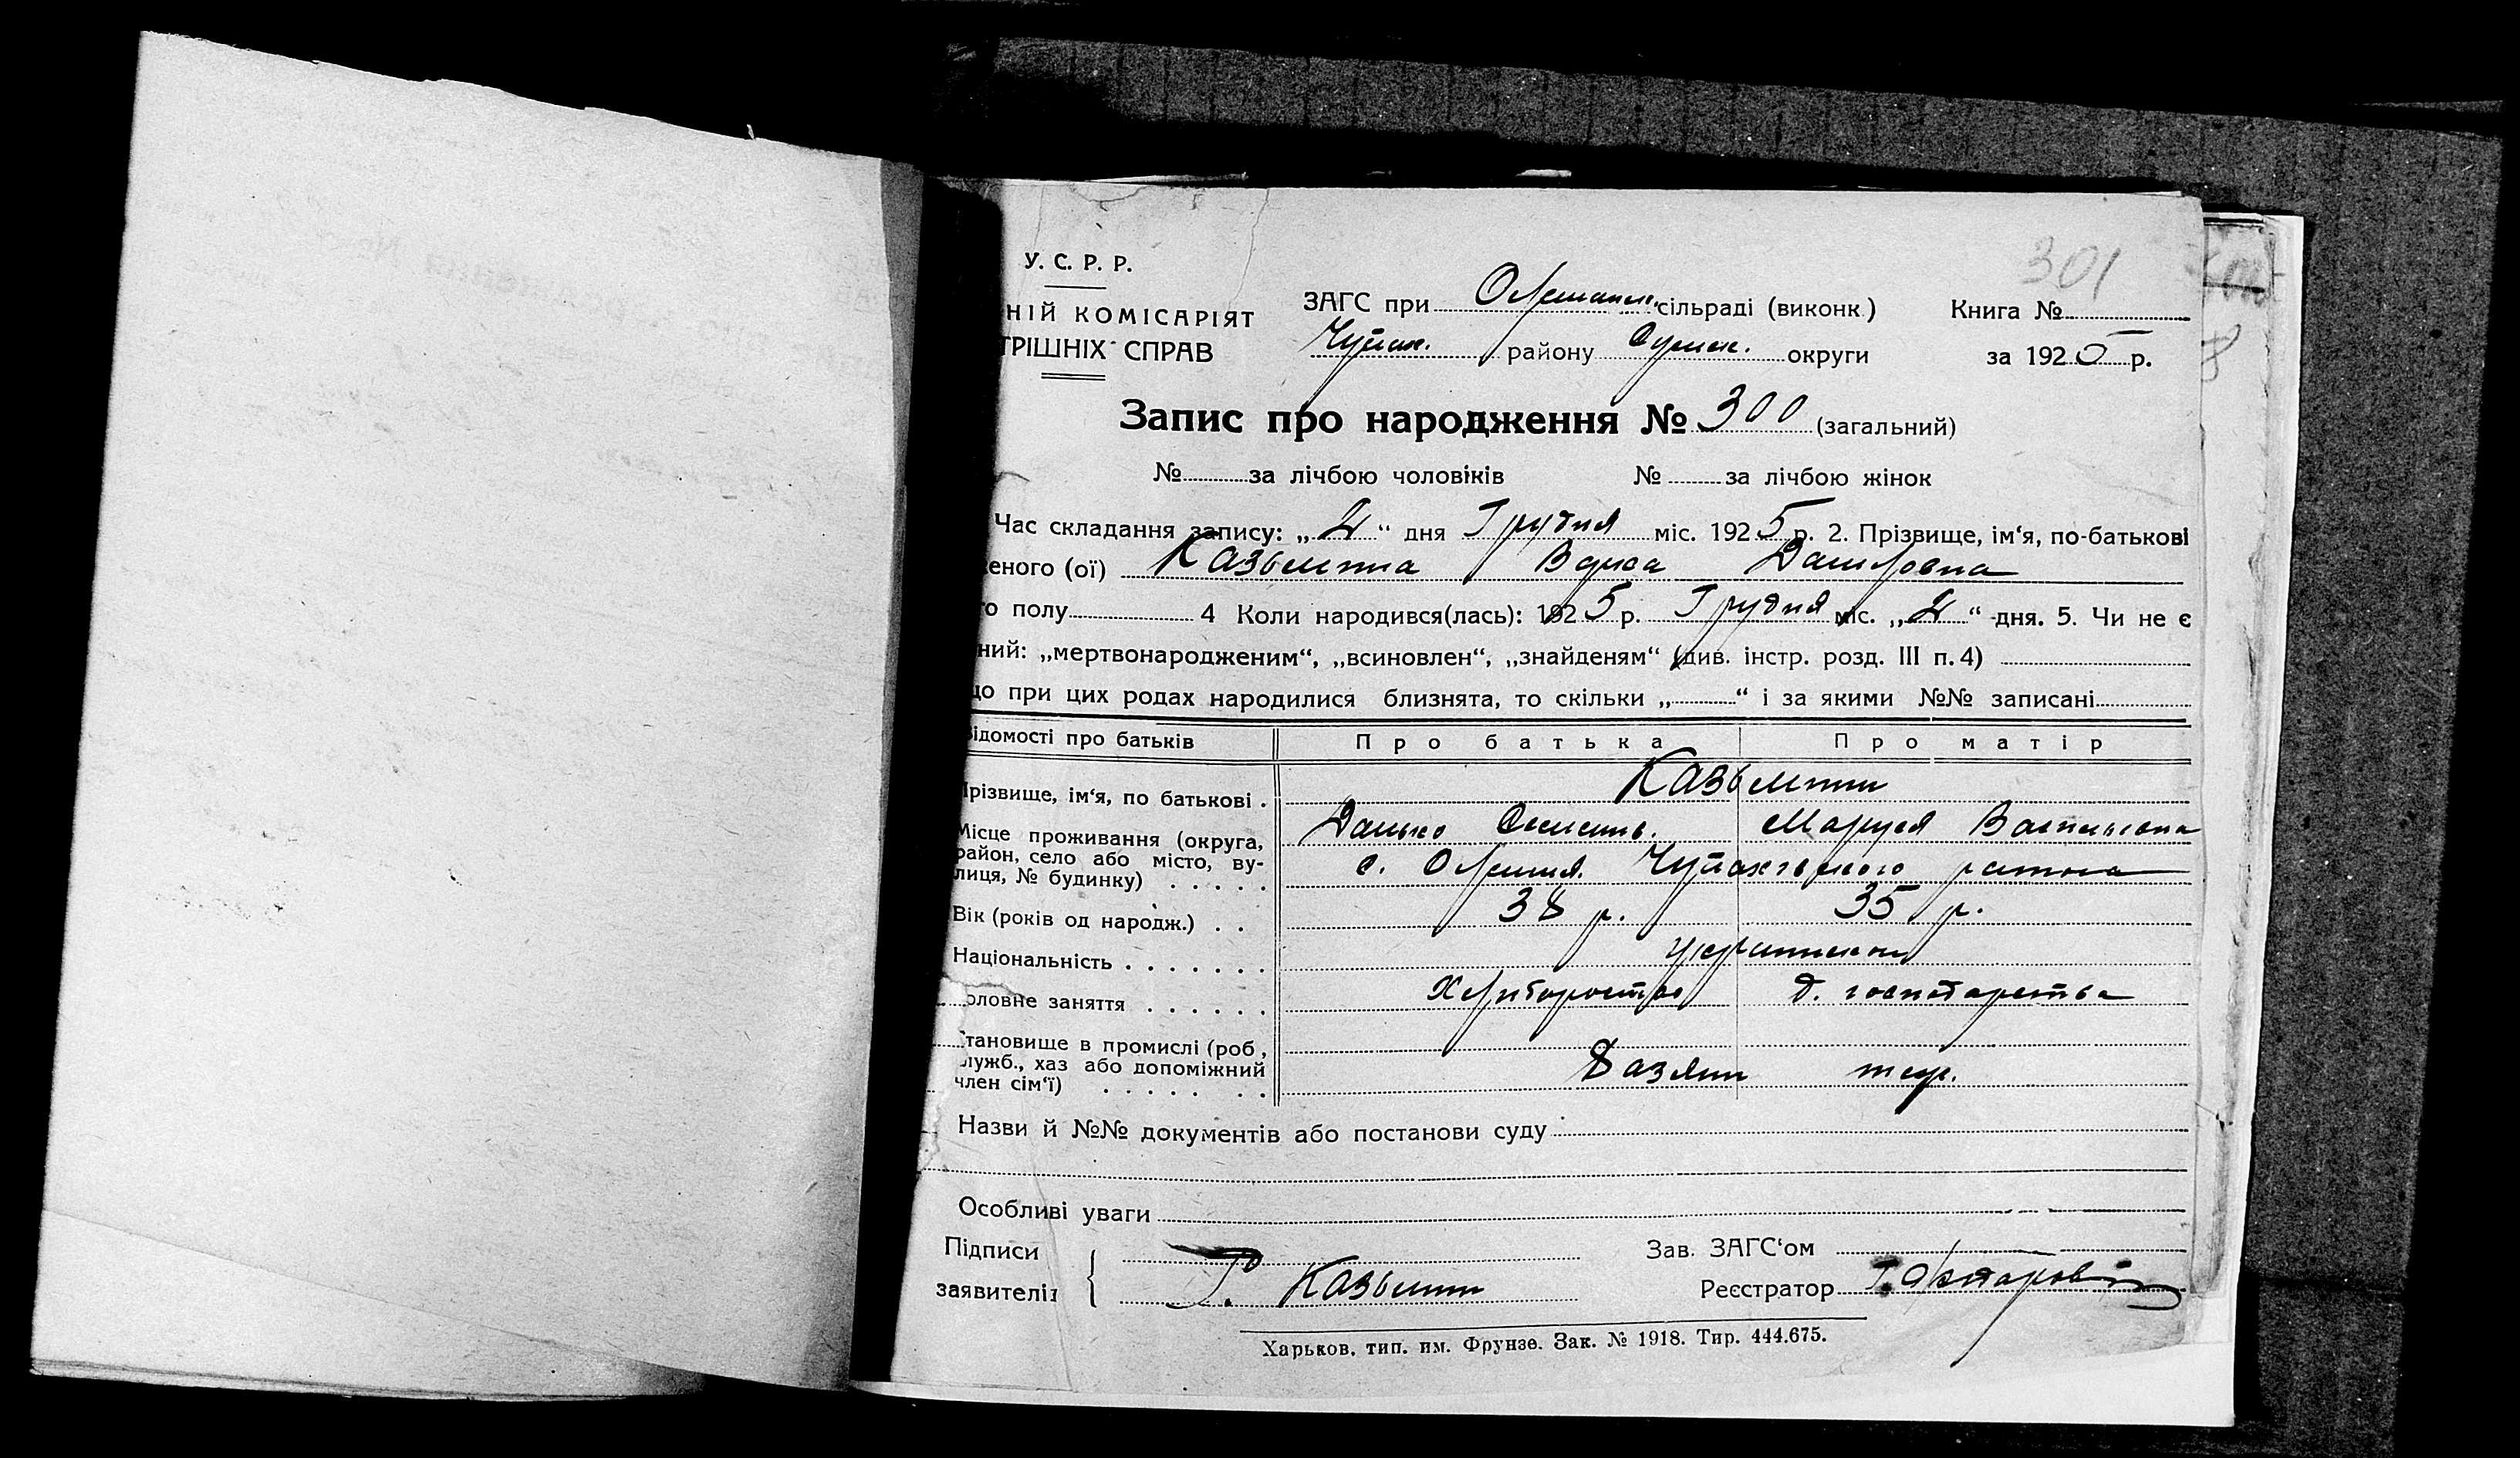 301
У. С. Р. Р.
НІЙ КОМІСАРІЯТ
ТРІШНІХ СПРАВ
ЗАГС при Олешанськ. сільраді (виконк.) Книга №
Чупах. району Сумськ. округи за 1925 р.
Запис про народження № 300 (загальний)
№ за лічбою чоловіків № за лічбою жінок
Час складання запису: „2“ дня Грудня міс. 1925 р. 2. Прізвище, ім‘я, по-батькові
еного (ої) Казьмина Даниловна
го полу 4 Коли народився(лась): 1925 р. Грудня міс. „2“ дня. 5. Чи не є
ний: „мертвонародженим“, „всиновлен“, „знайденям“ (див. інстр. розд. III п. 4)
що при цих родах народилися близнята, то скільки „ “ і за якими №№ записані
Відомості про батьків Про батька Про матір
Прізвище, ім‘я, по батькові . Казьмин
Данько Маруся Васильовна
Місце проживання (округа, район, село або місто, вулиця, № будинку) . . . . . с. Олешня Чупахівського району
Вік (років од народж.) . . 38 р. 35 р.
Національність . . . . . . . українськ
оловне заняття . . . . . . Хліборобство д. господарства
тановище в промислі (роб, служб., хаз або допоміжний член сім‘ї) . . . . . . . Хазяїн
Назви й №№ документів або постанови суду
Особливі уваги
Підписи Зав. ЗАГС‘ом
заявителів Казьмин Реєстратор
Харьков. тип. им. Фрунзе. Зак. № 1918. Тир. 444.675.